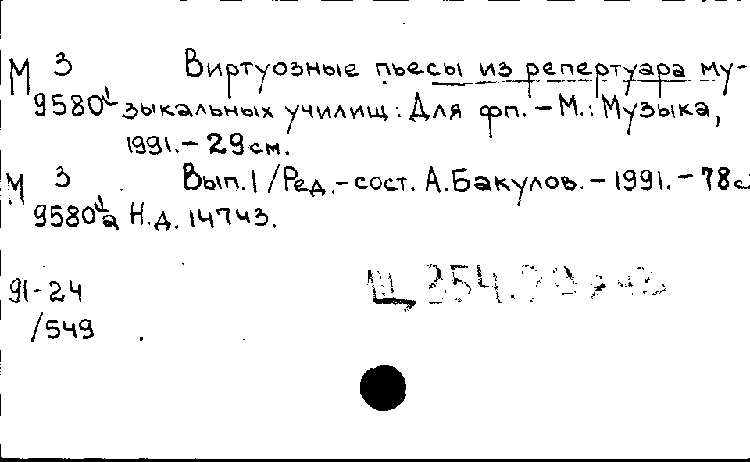 М 3 Виртуозные пьесы из репертуара му-
9580 зыкальных училищ: Для фп. – М.: Музыка,
1991. – 29 см.
М 3 Вып. 1 / Ред.-сост. А. Бакулов. – 1991. – 78 с.
9580 а Н.д. 14743.
91-24
/549